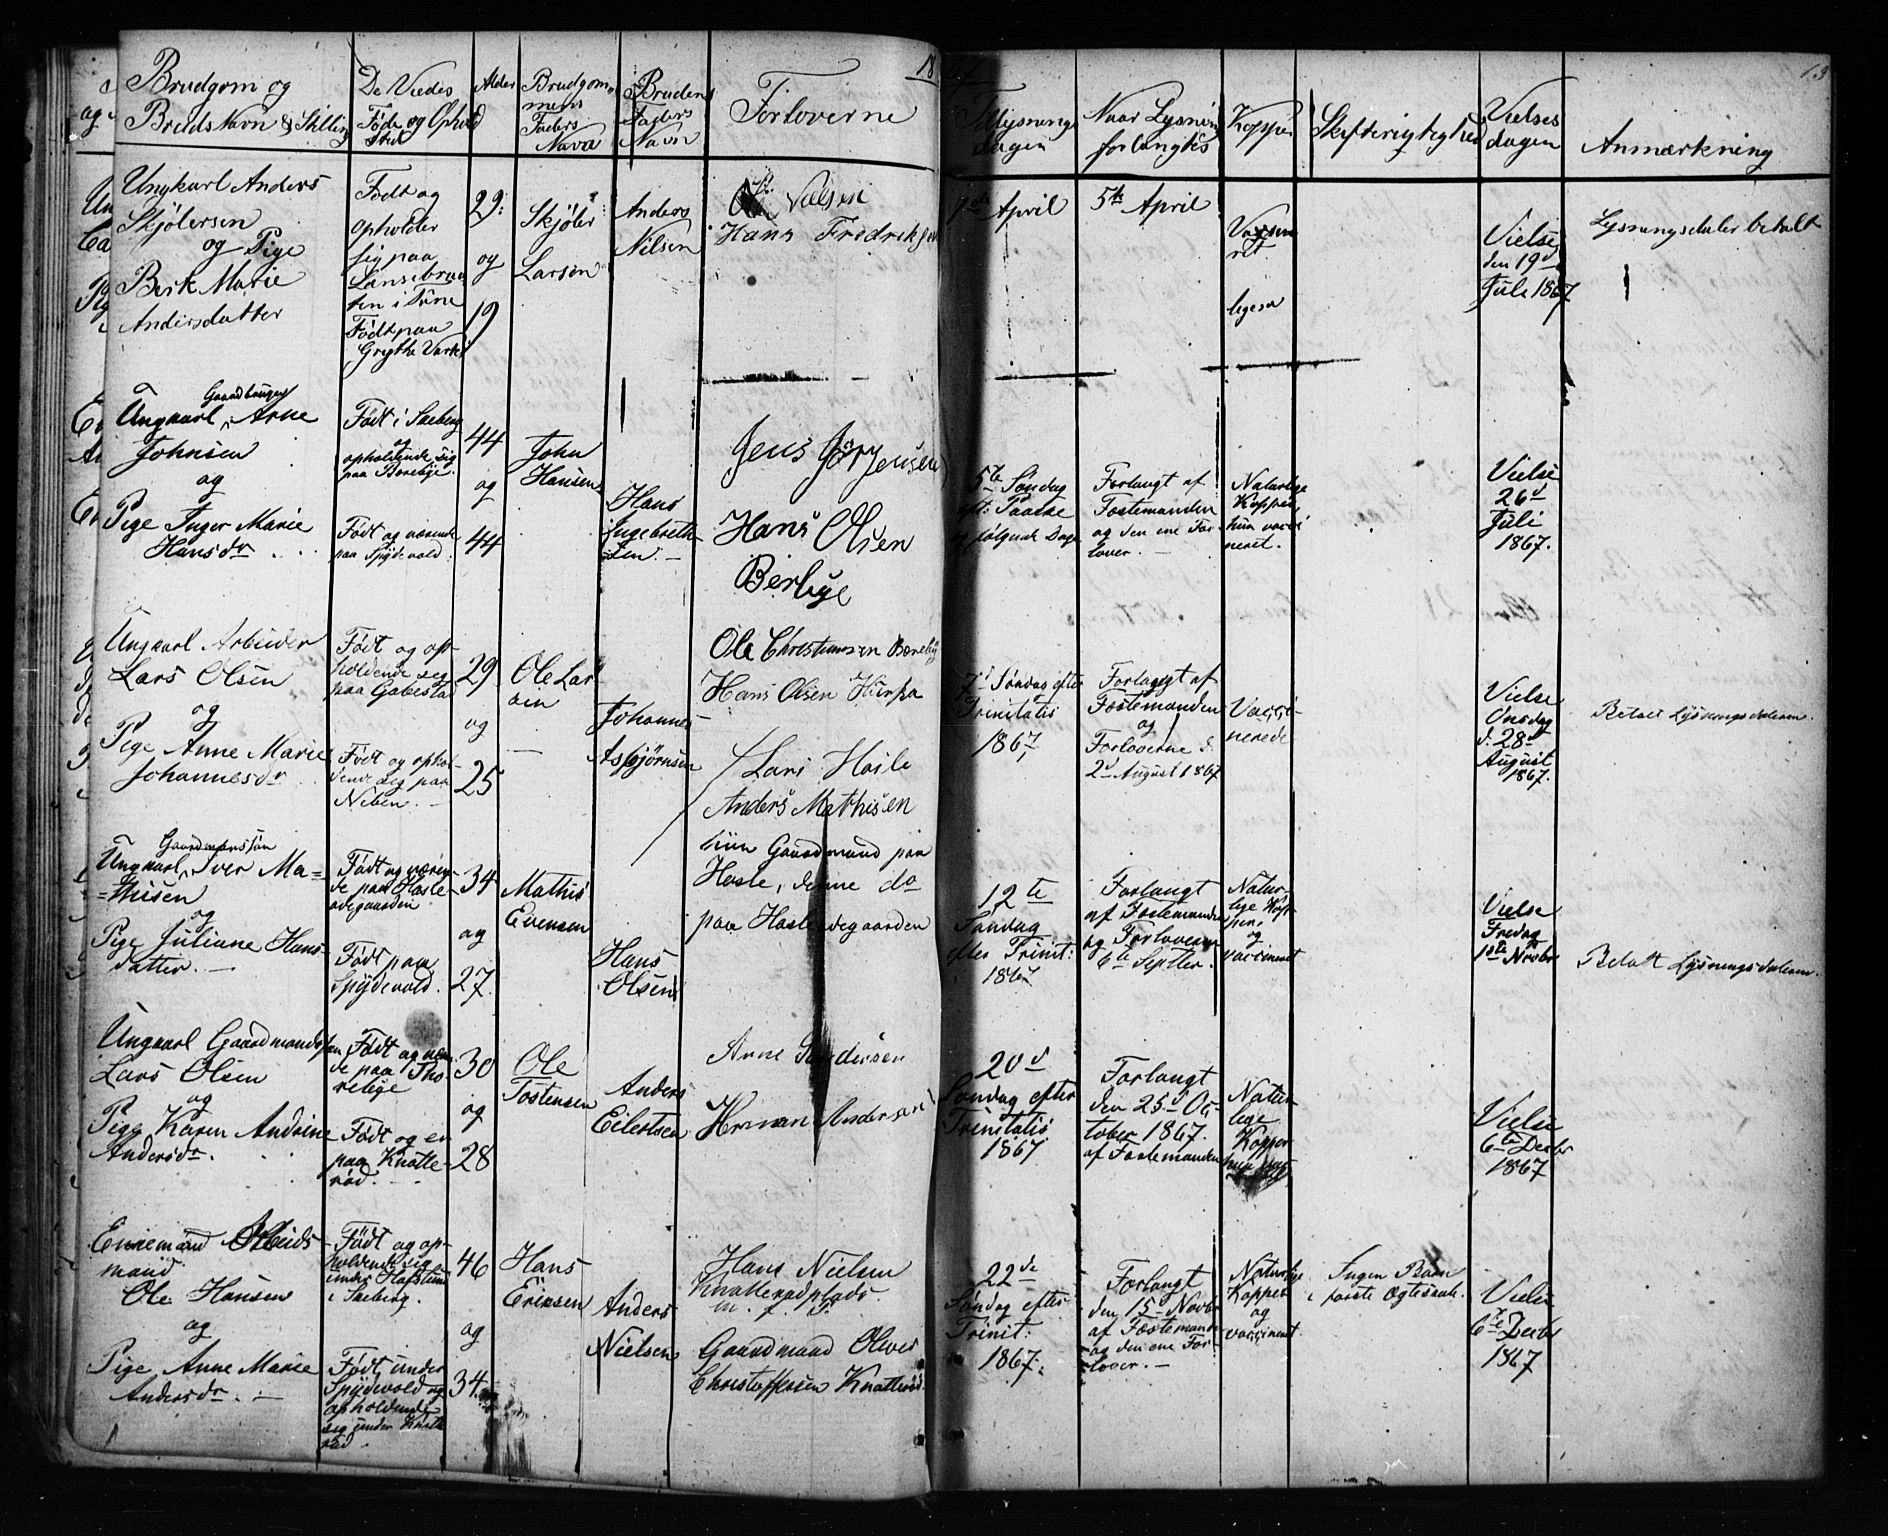 Brudgom og
Bruds Navn & Stilling
De Viedes
Føde og Ophold
Sted
Alder
Brudgom-
mens
Faders
Navn
Brudens
Faders
Navn
Forloverne
18
67
Tillysnings
dagen
Naar Lysning
forlangtes
Kopper
Skifterigtighed
Vielses
dagen
Anmærkning
13
Ungkarl Anders
Skjölersen
og Pige
Berk Marie
Andersdatter
Födt og
opholder
sig paa
i Tune
Födt paa
29
og
19
Skjöler
Larsen
Anders
Nilsen
Nielsen
Hans Fredriksen
April
5te April
Vaxsine
ret
ligesa
Vielse
den 19d
Juli 1867
Lysningsdaler betalt
Gaardbruger
Ungkarl, Arne
Johnsen
og
Pige Inger Marie
Hansdr
Födt i Skeberg
og
opholdende sig
paa Borebye.
Födt og værende
paa Spydevold.
44
og
44
John
Hansen
Hans
Ingebreth-
sen. -
Jens Jörgensen
Hans Olsen
Berbye
5te Søndag
eft. Paaske
følgende Dage
Forlangt af
Fostemanden
og den ene For-
lover. -
Naturlige
Kopper,
hun vacci
neret.
Vielse
26d
Juli
1867.
Ungkarl Arbeider
Lars Olsen
og
Pige Anne Marie
Johannesdr
Födt og op-
holdende sig
paa Gabestad
Födt og ophol-
dende sig paa
Neben. -
29
og
25
Ole Lar-
sen
Johannes
Asbjørnsen
Ole Christiansen Boreby
Hans Olsen
7d Søndag efter
Trinitatis
1867,
Forlangt af
Fostemanden
og
Forloverne d.
2d August 1867
Vacci-
nerede
Vielse
Onsdag
d. 28d
August
1867.
Betalt Lysningsdaleren.
Gaardmandssøn
Ungkarl, Iver Ma-
thisen
og
Pige Juliane Hans-
datter. -
Födt og væren-
de paa Hasle-
ødegaarden
Födt paa
Spydevold.
34
og
27.
Mathis
Evensen
Hans
Olsen
Lars Hasle
Anders Mathisen
hiin Gaardmand paa
Hasle, denne do
paa Hasleødegaarden
12te
Søndag
efter Trinit:
1867
Forlangt
af Fostemanden
og Forloveren
6te Septber.
Natur-
lige Kop-
pere
og
vaccineret
Vielse
Fredag
1ste Novbr
Betalt Lysningsdaleren.
Ungkarl Gaardmandssøn
Lars Olsen
og
Pige Karen Andrine
Andersdr.
Födt og væren-
de paa Tho-
relebye
Födt og er
paa Knatte-
rød.
30
og
28
Ole
Tostensen
Anders
Eilertsen
Arne Andersen
Herman Andersen
20d
Søndag efter
Trinitatis
1867
Forlangt
den 25d Oc-
tober 1867.
af Fostemanden
Natur-
lige
Kopper
Vielse
6te Decbr
1867
Enkemand Arbeids-
mand
Ole Hansen
og
Pige Anne Marie
Andersdr. -
Födt og op-
holdende sig
under Hafslund
i Skeberg.
Födt under
Spydevold og
opholdende
sig under Knatte
rød.
46
og
34.
Hans
Eriksen
Anders
Nielsen
Hans Nielsen
Knatterødplads.
m. f. P.
Gaardmand Oliver
Christoffersen Knatterød
22de
Søndag efter
Trinit:
1867.
Forlangt
den 15d Novbr
af Fostemanden
og den ene For-
lover. -
Naturlige
Kopper
og
vaccineret.
Ingen Børn
i første Ægteskab.
Vielse
6te Decbr
1867